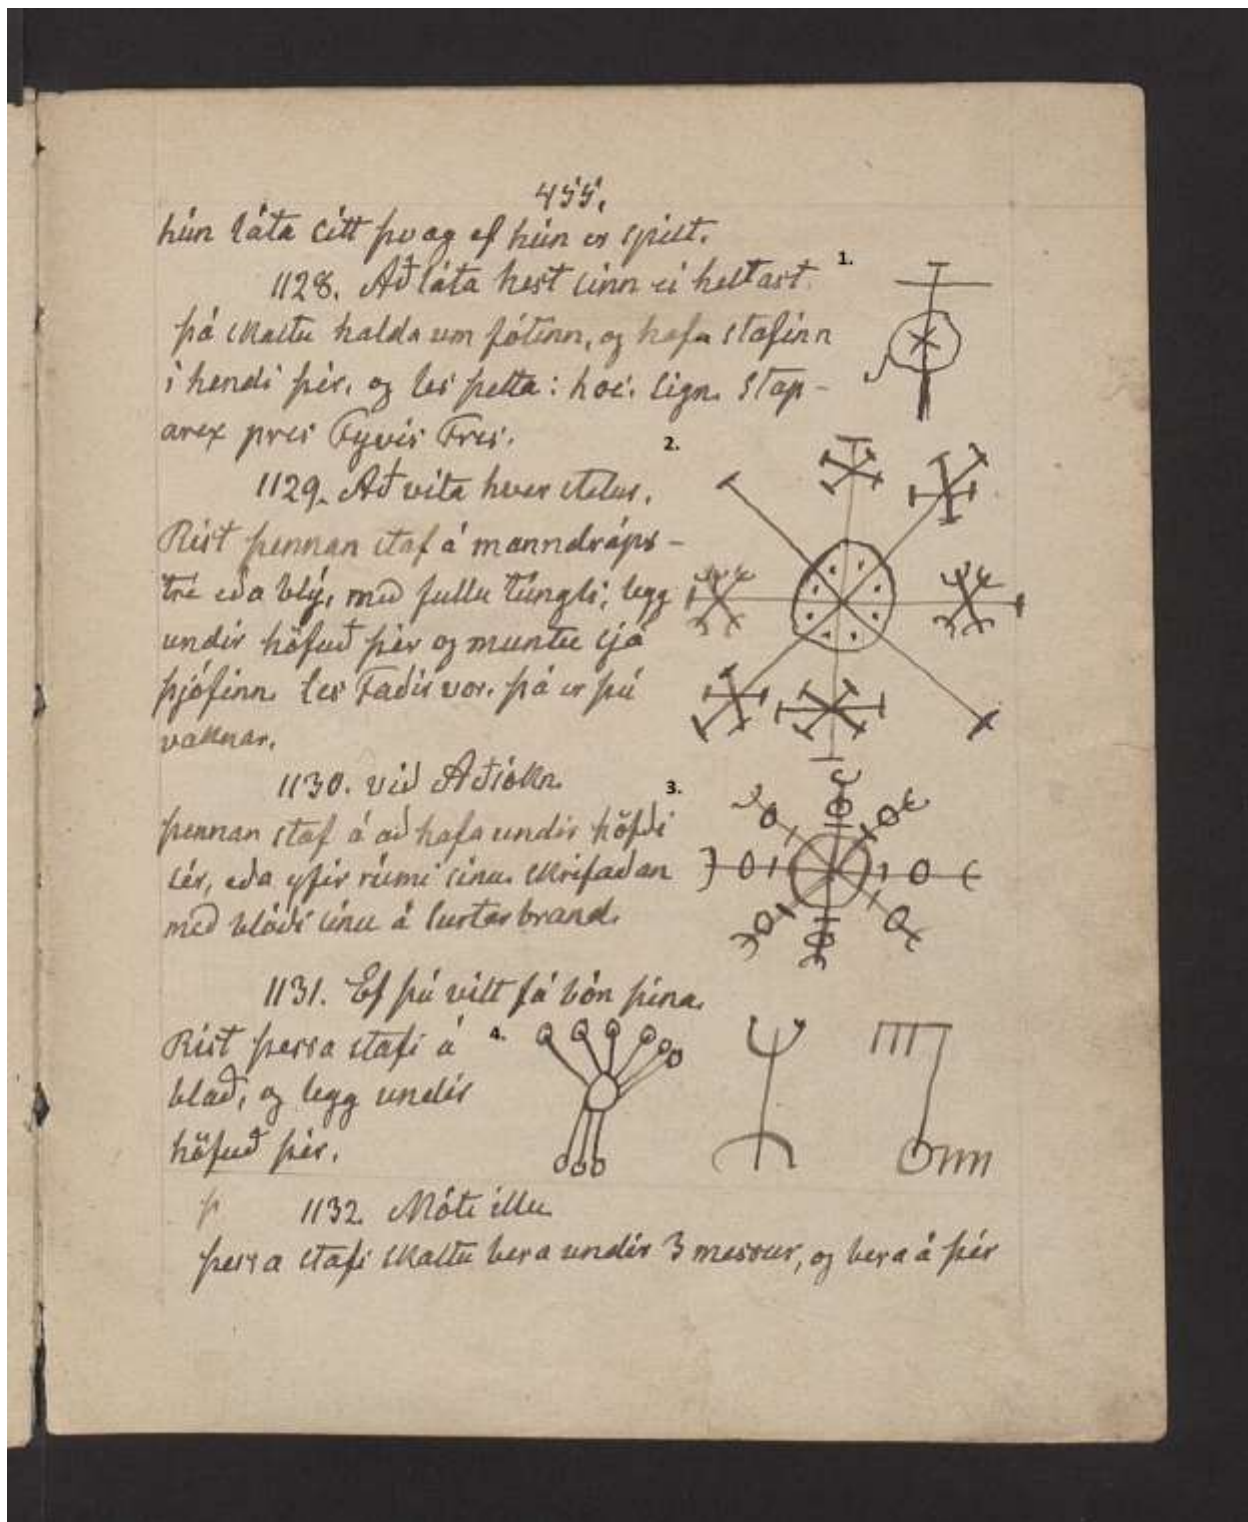 455.
hún láta sítt þvag ef hún er spillt.
1128. Að láta hest sinn ei heltast. 1.
þá skaltu halda um fótinn, og hafa stafinn
í hendi þér, og les þetta: hoc. sign. Stap-
arex pres Tyvis Tres.
2.
1129. Að vita hver stelur.
Rist þennan staf á manndráps-
tré eða blý, með fullu túngli, legg
undir höfuð þér og muntu sjá
þjófinn. les Faðir vor. þá er þú
vaknar.
1130. við Aðsókn. 3.
þennan staf á að hafa undir höfði
sér, eða yfir rúmi sínu. skrifaðan
með blóði sínu á surtarbrand.
1131. Ef þú vilt fá bón þína.
Rist þessa stafi á 4.
blað, og legg undir
höfuð þér.
þ 1132. Móti illu.
þessa stafi skaltu bera undir 3 messur, og bera á þér